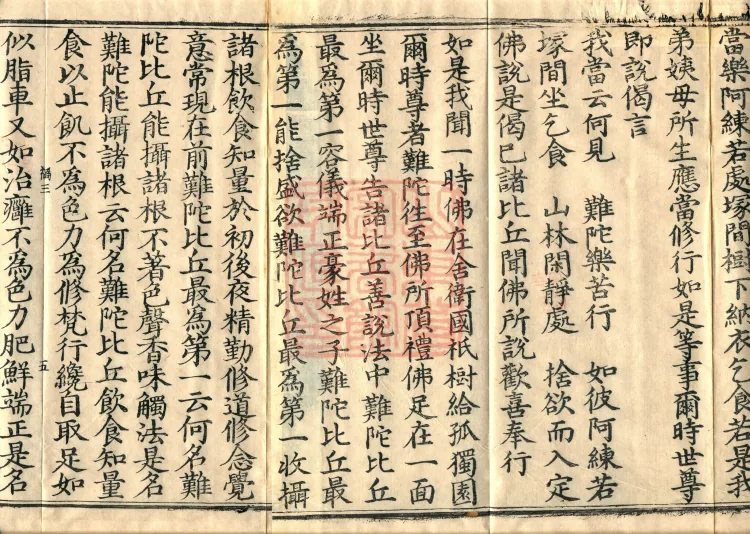 當樂阿練若處塚間樹下納衣乞食若是我
弟姨母所生應當修行如是等事爾時世尊
即說偈言
我當云何見　難陀樂苦行　如彼阿練若
塚間坐乞食　山林閑靜處　捨欲而入定
佛說是偈已諸比丘聞佛所說歡喜奉行
如是我聞一時佛在舍衛國祇樹給孤獨園
爾時尊者難陀往至佛所頂禮佛足在一面
坐爾時世尊告諸比丘善說法中難陀比丘
最為第一容儀端正豪姓之子難陀比丘最
為第一能捨盛欲難陀比丘最為第一收攝
諸根飲食知量於初後夜精勤修道修念覺
意常現在前難陀比丘最為第一云何名難
陀比丘能攝諸根不著色聲香味觸法是名
難陀能攝諸根云何名難陀比丘飲食知量
食以止飢不為色力為修梵行纔自取足如
三　五
似脂車又如治癰不為色力肥鮮端正是名